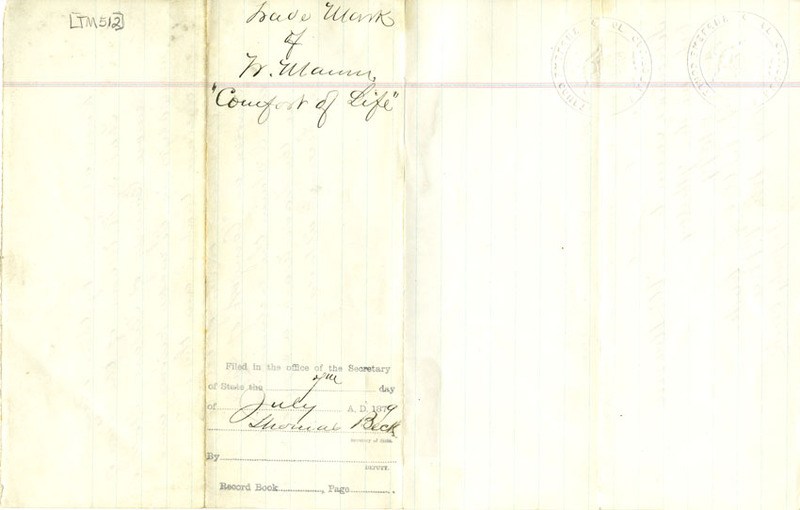 [TM512]
Trade Mark
of
W. Mann
"Comfort of Life"
Filed in the office of the Secretary
of State the 7th day
of July A. D. 1879
Thomas Beck
Secretary of State.
By
DEPUTY.
Record Book, Page.